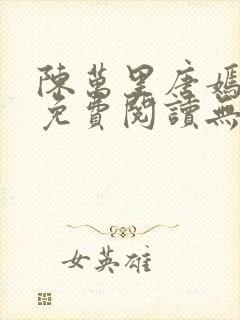 陳萬里唐嫣
免費閱讀無
女英雄